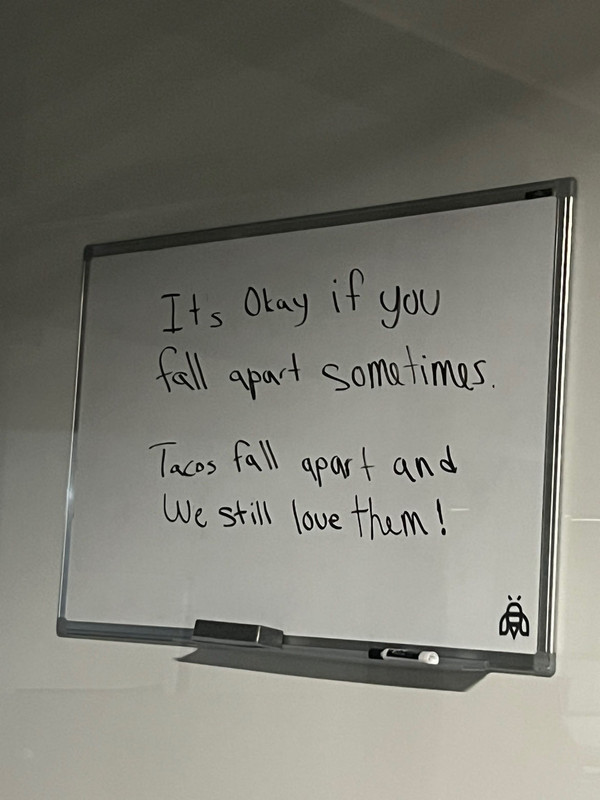 Its Okay if you
fall apart sometimes.
Tacos fall apart and
We still love them!